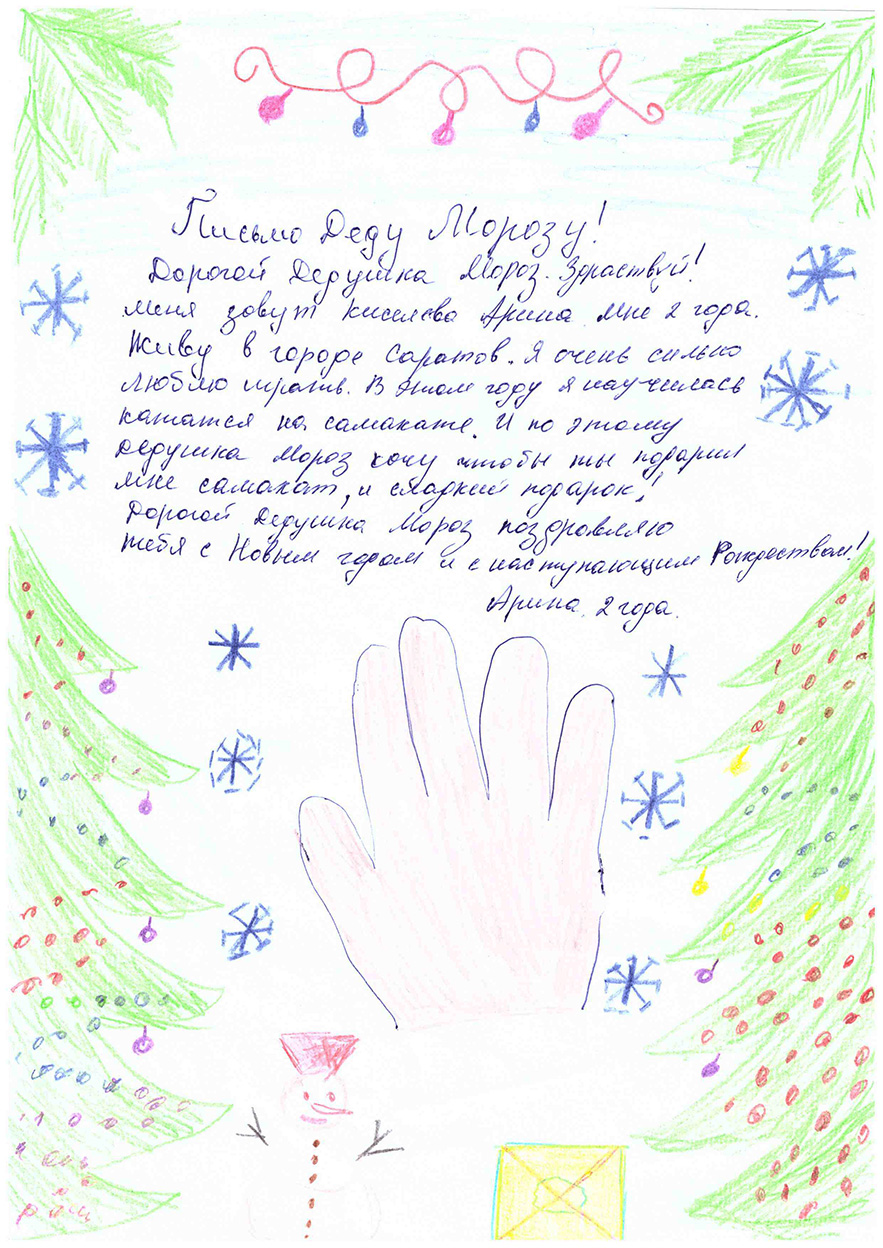 Письмо Деду Морозу!
Дорогой Дедушка Мороз. Здраствуй!
меня зовут Киселева Арина мне 2 года.
Живу в городе Саратов. Я очень сильно
люблю играть. В этом году я научилась
кататся на самакате. И по этому
Дедушка Мороз хочу чтобы ты подарил
мне самакат, и сладкий подарок!
Дорогой Дедушка Мороз поздравляю
тебя с Новым годом и с наступающим Рождеством!
Арина, 2 года.